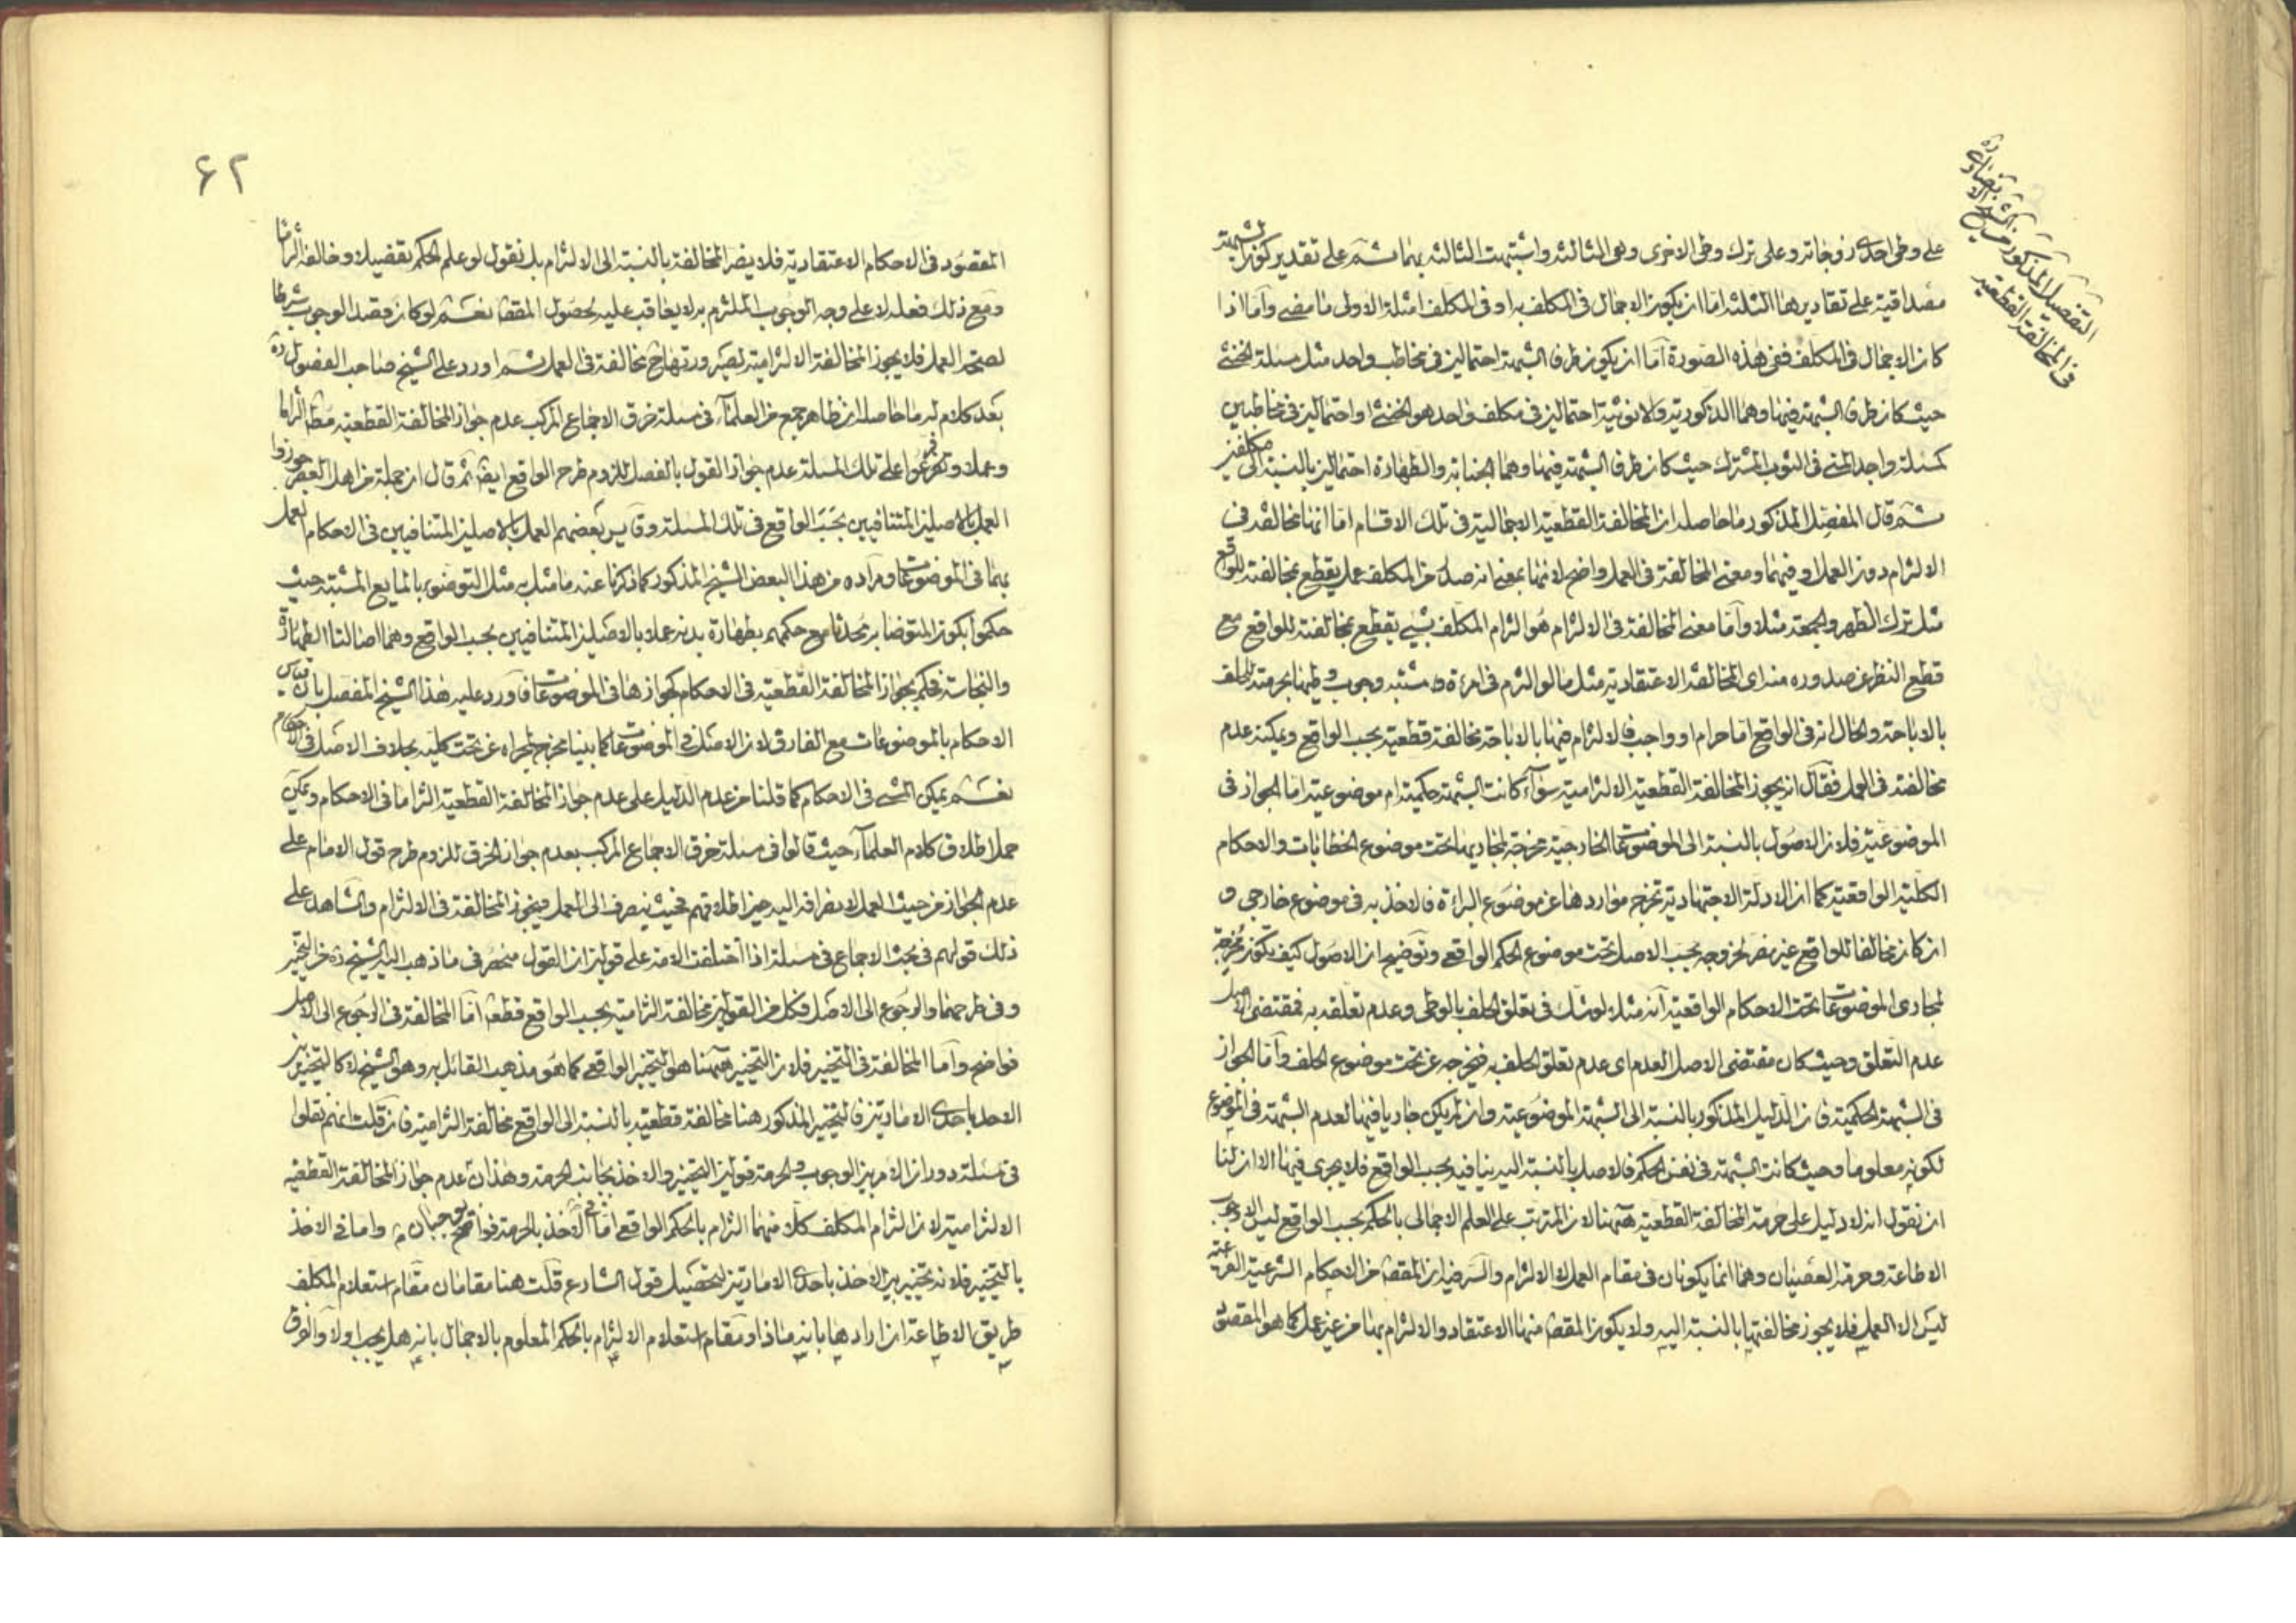 على وطى احدى زوجاته وعلى ترك وطى الاخرى وهى الثالثة واشتبهت الثالثة بهما ثم على تقدير كون الشبهة
مصداقية على تقاديرها الثلثة اما ان يكون الاجمال فى المكلف به او فى المكلف امثلة الاولى ما مضى واما اذا
كان الاجمال فى المكلف ففى هذه الصورة اما ان يكون طرفا الشبهة احتمالين فى مخاطب واحد مثل مسئلة الخنثى
حيث كان طرفا الشبهة فيها وهما الذكورية والانوثية احتمالين فى مكلف واحد هو الخنثى او احتمالين فى مخاطبين
كمسئلة واجدى المنى فى الثوب المشترك حيث كان طرفا الشبهة فيها وهما الجنابة والطهارة احتمالين بالنسبة الى مكلفين
ثم قال المفصل المذكور ما حاصله ان المخالفة القطعية الاجمالية فى تلك الاقسام اما انها مخالفة فى
الالتزام دون العمل او فيهما ومعنى المخالفة فى العمل واضح لانها بمعنى انه صدر من المكلف عمل يقطع بمخالفته للواقع
مثل ترك الظهر والجمعة مثلا واما معنى المخالفة فى الالتزام هو التزام المكلف بشىء يقطع بمخالفته للواقع مع
قطع النظر عن صدوره منه اى المخالفة الاعتقادية مثل ما لو التزم فى امرءة مشتبه وجوب وطيها بحرمته للحلف
بالاباحة والحال انه فى الواقع اما حرام او واجب فالالتزام فيها بالاباحة مخالفة قطعية بحسب الواقع ويمكنه عدم
مخالفته فى العمل فقال انه يجوز المخالفة القطعية الالتزامية سواء كانت الشبهة حكمية ام موضوعية اما الجواز فى
الموضوعية فلان الاصول بالنسبة الى الموضوعات الخارجية مخرجة لمجاريها تحت موضوع الخطابات والاحكام
الكلية الواقعية كما ان الادلة الاجتهادية تخرج مواردها عن موضوع البرائة فالاخذ به فى موضوع خارجى و
ان كان مخالفا للواقع غير مضر لخروجه بحسب الاصل تحت موضوع الحكم الواقعى وتوضيح ان الاصول كيف تكون مخرجة
لمجارى الموضوعات تحت الاحكام الواقعية انه مثلا لو شك فى تعلق الحلف بالوطى وعدم تعلقه به فمقتضى الاصل
عدم التعلق وحيث كان مقتضى الاصل العدم اى عدم تعلق الحلف به فيخرجه عن تحت موضوع الحلف واما الجواز
فى الشبهة الحكمية فان الدليل المذكور بالنسبة الى الشبهة الموضوعية وان لم يكن جاريا فيها لعدم الشبهة فى الموضوع
لكونه معلوما وحيث كانت الشبهة فى نفس الحكم فالاصل بالنسبة اليه ينافيه بحسب الواقع فلا يجرى فيها الا ان لنا
ان نقول انه لا دليل على حرمة المخالفة القطعية ههنا لان المترتب على العلم الاجمالى بالحكم بحسب الواقع ليس الا وجوب
الاطاعة وحرمة العصيان وهما انما يكونان فى مقام العمل لا الالتزام والسر فيه ان المقصود من الاحكام الشرعية الفرعية
ليس الا العمل فلا يجوز مخالفتها بالنسبة اليه ولا يكون المقص منها الاعتقاد والالتزام بها من غير عمل كما هو المقصود
التفصيل المذكور من الشيخ الانصارى ره
فى المخالفة القطعية
۶۲
المقصود فى الاحكام الاعتقادية فلا يضر المخالفة بالنسبة الى الالتزام بل نقول لو علم الحكم تفصيلا وخالفه التزاما
ومع ذلك فعله لا على وجه الوجوب الملتزم به لا يعاقب عليه لحصول المقص نعم لو كان قصد الوجوب شرطا
لصحة العمل فلا يجوز المخالفة الالتزامية لصيرورتها ح مخالفة فى العمل ثم اورد على الشيخ صاحب الفصول ره
بعد كلام له ما حاصله ان ظاهر جمع من العلماء فى مسئلة خرق الاجماع المركب عدم جواز المخالفة القطعية مط التزاما
وعملا وتفرعوا على تلك المسئلة عدم جواز القول بالفصل للزوم طرح الواقع ايض ثم قال ان جملة من اهل العصر جوزوا
العمل بالاصلين المتنافيين بحسب الواقع فى تلك المسئلة وقايس بعضهم العمل بالاصلين المتنافيين فى الاحكام العمل
بهما فى الموضوعات ومراده من هذا البعض الشيخ المذكور كما ذكرنا عنه ما مثل به مثل التوضوء بالمايع المشتبه حيث
حكموا بكون المتوضا به محدثا مع حكمهم بطهارة بدنه عملا بالاصلين المتنافيين بحسب الواقع وهما اصالتا الطهارة
والنجاسة فحكم بجواز المخالفة القطعية فى الاحكام كجوازها فى الموضوعات فاورد عليه هذا الشيخ المفصل بان قياس
الاحكام بالموضوعات مع الفارق لان الاصل فى الموضوعات كما بينا مخرج لمجراه عن تحت كليه بخلاف الاصل فى الاحكام
نعم يمكن المشى فى الاحكام كما قلنا من عدم الدليل على عدم جواز المخالفة القطعية التزاما فى الاحكام ويمكن
حمل اطلاق كلام العلماء حيث قالوا فى مسئلة خرق الاجماع المركب بعدم جواز الخرق للزوم طرح قول الامام على
عدم الجواز من حيث العمل لانصرافه اليه حين اطلاقهم فحيث ينصرف الى العمل فيجوز المخالفة فى الالتزام والشاهد على
ذلك قولهم فى بحث الاجماع فى مسئلة اذا اختلفت الامة على قولين ان القول منحصر فى ما ذهب اليه الشيخ ره من التخيير
وفى طرحهما والرجوع الى الاصل فكل من القولين مخالفة التزامية بحسب الواقع قطعا اما المخالفة فى الرجوع الى الاصل
فواضح واما المخالفة فى التخيير فلان التخيير ههنا هو التخيير الواقعى كما هو مذهب القائل به وهو الشيخ لا كالتخيير بين
الاخذ باحدى الامارتين فالتخيير المذكور هنا مخالفة قطعية بالنسبة الى الواقع مخالفة التزامية فان قلت انهم نقلوا
فى مسئلة دوران الامر بين الوجوب والحرمة قولين التخيير والاخذ بجانب الحرمة وهذان عدم جواز المخالفة القطعية
الالتزامية لان التزام المكلف كلا منهما التزام بالحكم الواقعى اما فى الاخذ بالحرمة فواضح واما فى الاخذ
بالتخيير فلانه تخيير بين الاخذ باحدى الامارتين لتحصيل قول الشارع قلت هنا مقامان مقام استعلام المكلف
طريق الاطاعة ان ارادها بانه ماذا ومقام استعلام الالتزام بالحكم المعلوم بالاجمال بانه هل يجب اولا والفرق